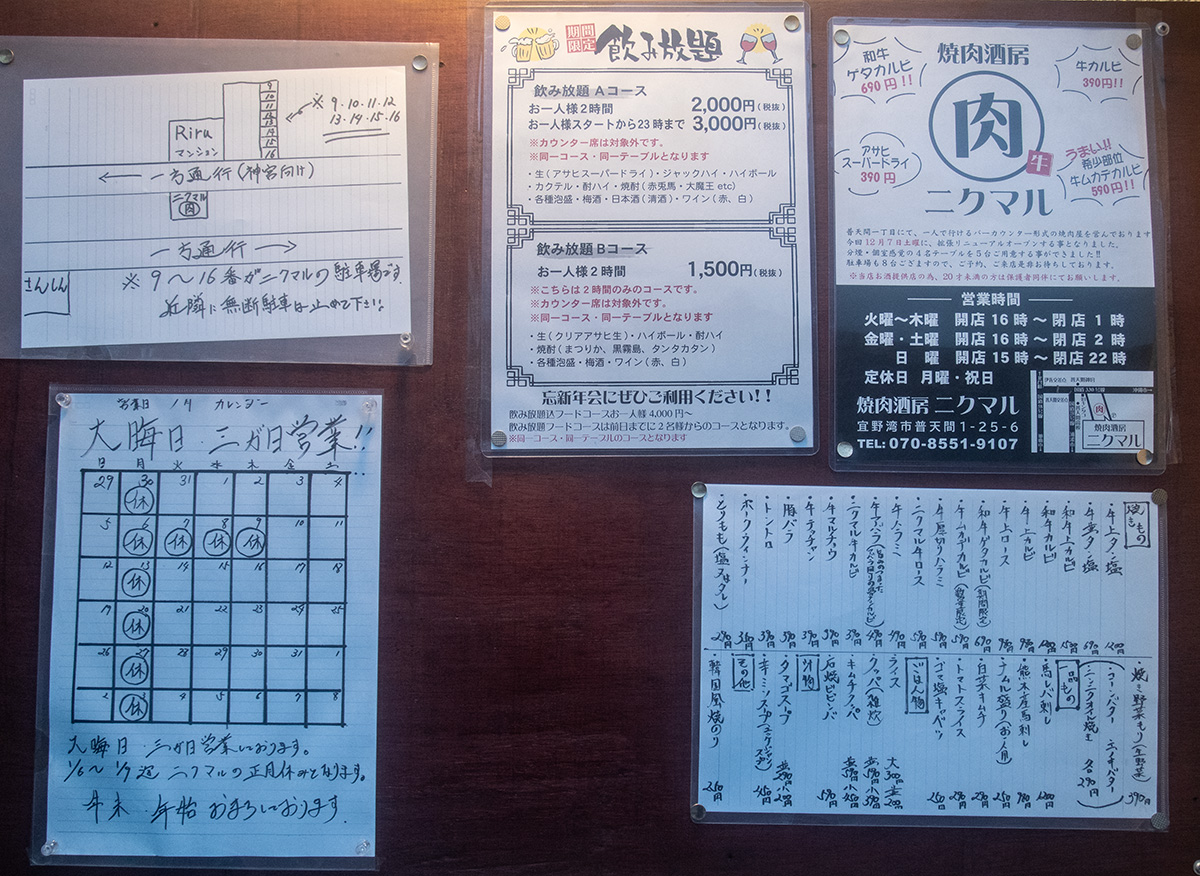 Riru
マンション
9
10
11
12
13
14
15
16
※ 9・10・11・12
13・14・15・16
一方通行(神宮向け)
ニクマル
肉
一方通行
さんしん
※ 9〜16番がニクマルの駐車場です。
近隣に無断駐車は止めて下さい。
期間限定
飲み放題
飲み放題 Aコース
お一人様2時間 2,000円(税抜)
お一人様スタートから23時まで 3,000円(税抜)
※カウンター席は対象外です。
※同一コース・同一テーブルとなります
・生(アサヒスーパードライ)・ジャックハイ・ハイボール
・カクテル・酎ハイ・焼酎(赤兎馬・大魔王 etc)
・各種泡盛・梅酒・日本酒(清酒)・ワイン(赤、白)
飲み放題 Bコース
お一人様2時間 1,500円(税抜)
※こちらは2時間のみのコースです。
※カウンター席は対象外です。
※同一コース・同一テーブルとなります
・生(クリアアサヒ生)・ハイボール・酎ハイ
・焼酎(まつりか、黒霧島、タンタカタン)
・各種泡盛・梅酒・ワイン(赤、白)
忘新年会にぜひご利用ください!!
飲み放題込フードコースお一人様 4,000円〜
飲み放題フードコースは前日までに2名様からのコースとなります。
※同一コース・同一テーブルのコースとなります
和牛
ゲタカルビ
690円!!
焼肉酒房
牛カルビ
390円!!
肉
牛
アサヒ
スーパードライ
390円
うまい!!
希少部位
牛ムカデカルビ
590円!!
ニクマル
普天間一丁目にて、一人で行けるバーカウンター形式の焼肉屋を営んでおります
今回12月7日土曜に、拡張リニューアルオープンする事となりました。
分煙・個室感覚の4名テーブルを5台ご用意する事ができました!!
駐車場も8台ございますので、ご予約、ご来店是非お待ちしております。
※当店お酒提供店の為、20才未満の方は保護者同伴にてお願いします。
営業時間
火曜〜木曜 開店16時〜閉店 1時
金曜・土曜 開店16時〜閉店 2時
日 曜 開店15時〜閉店22時
定休日 月曜・祝日
焼肉酒房 ニクマル
宜野湾市普天間1-25-6
TEL: 070-8551-9107
肉
焼肉酒房
ニクマル
営業日 1月 カレンダー
大晦日・三が日営業!!
日 月 火 水 木 金 土
29 30 31 1 2 3 4
休
5 6 7 8 9 10 11
休 休 休 休
12 13 14 15 16 17 18
休
19 20 21 22 23 24 25
休
26 27 28 29 30 31
休
2 3 4 5 6 7 8
休
大晦日 三が日営業しております。
1/6〜1/9迄 ニクマルの正月休みとなります。
年末 年始 お待ちしております。
焼きもの
・牛上タン塩 1200円
・牛並タン塩 690円
・和牛上カルビ 1500円
・和牛カルビ 1200円
・牛上カルビ 980円
・牛上ロース 980円
・和牛ゲタカルビ(期間限定) 690円
・牛ムカデカルビ(数量限定) 590円
・ニクマル牛ロース 590円
・牛厚切りハラミ 590円
・牛ハラミ 490円
・牛バラ 490円
・ニクマル牛カルビ 390円
・牛マルチョウ 390円
・牛テッチャン 390円
・豚バラ 390円
・トントロ 390円
・ポークウィンナー 350円
・とりもも(塩又はタレ) 290円
・焼き野菜もり(生野菜) 390円
・コーンバター ・エノキバター
・ニンニクオイル焼き 各290円
一品もの
・馬レバ刺し 1200円
・熊本産馬刺し 980円
・ナムル盛り(お一人用) 250円
・白菜キムチ 290円
・トマトスライス 290円
・ゴマ塩キャベツ 250円
ごはん物
・ライス 大300円 並200円
・クッパ(雑炊) 並590円 小390円
・キムチクッパ 並590円 小450円
・石焼ビビンバ 590円
汁物
・タマゴスープ 並390円 小200円
その他
・韓国風焼のり 250円